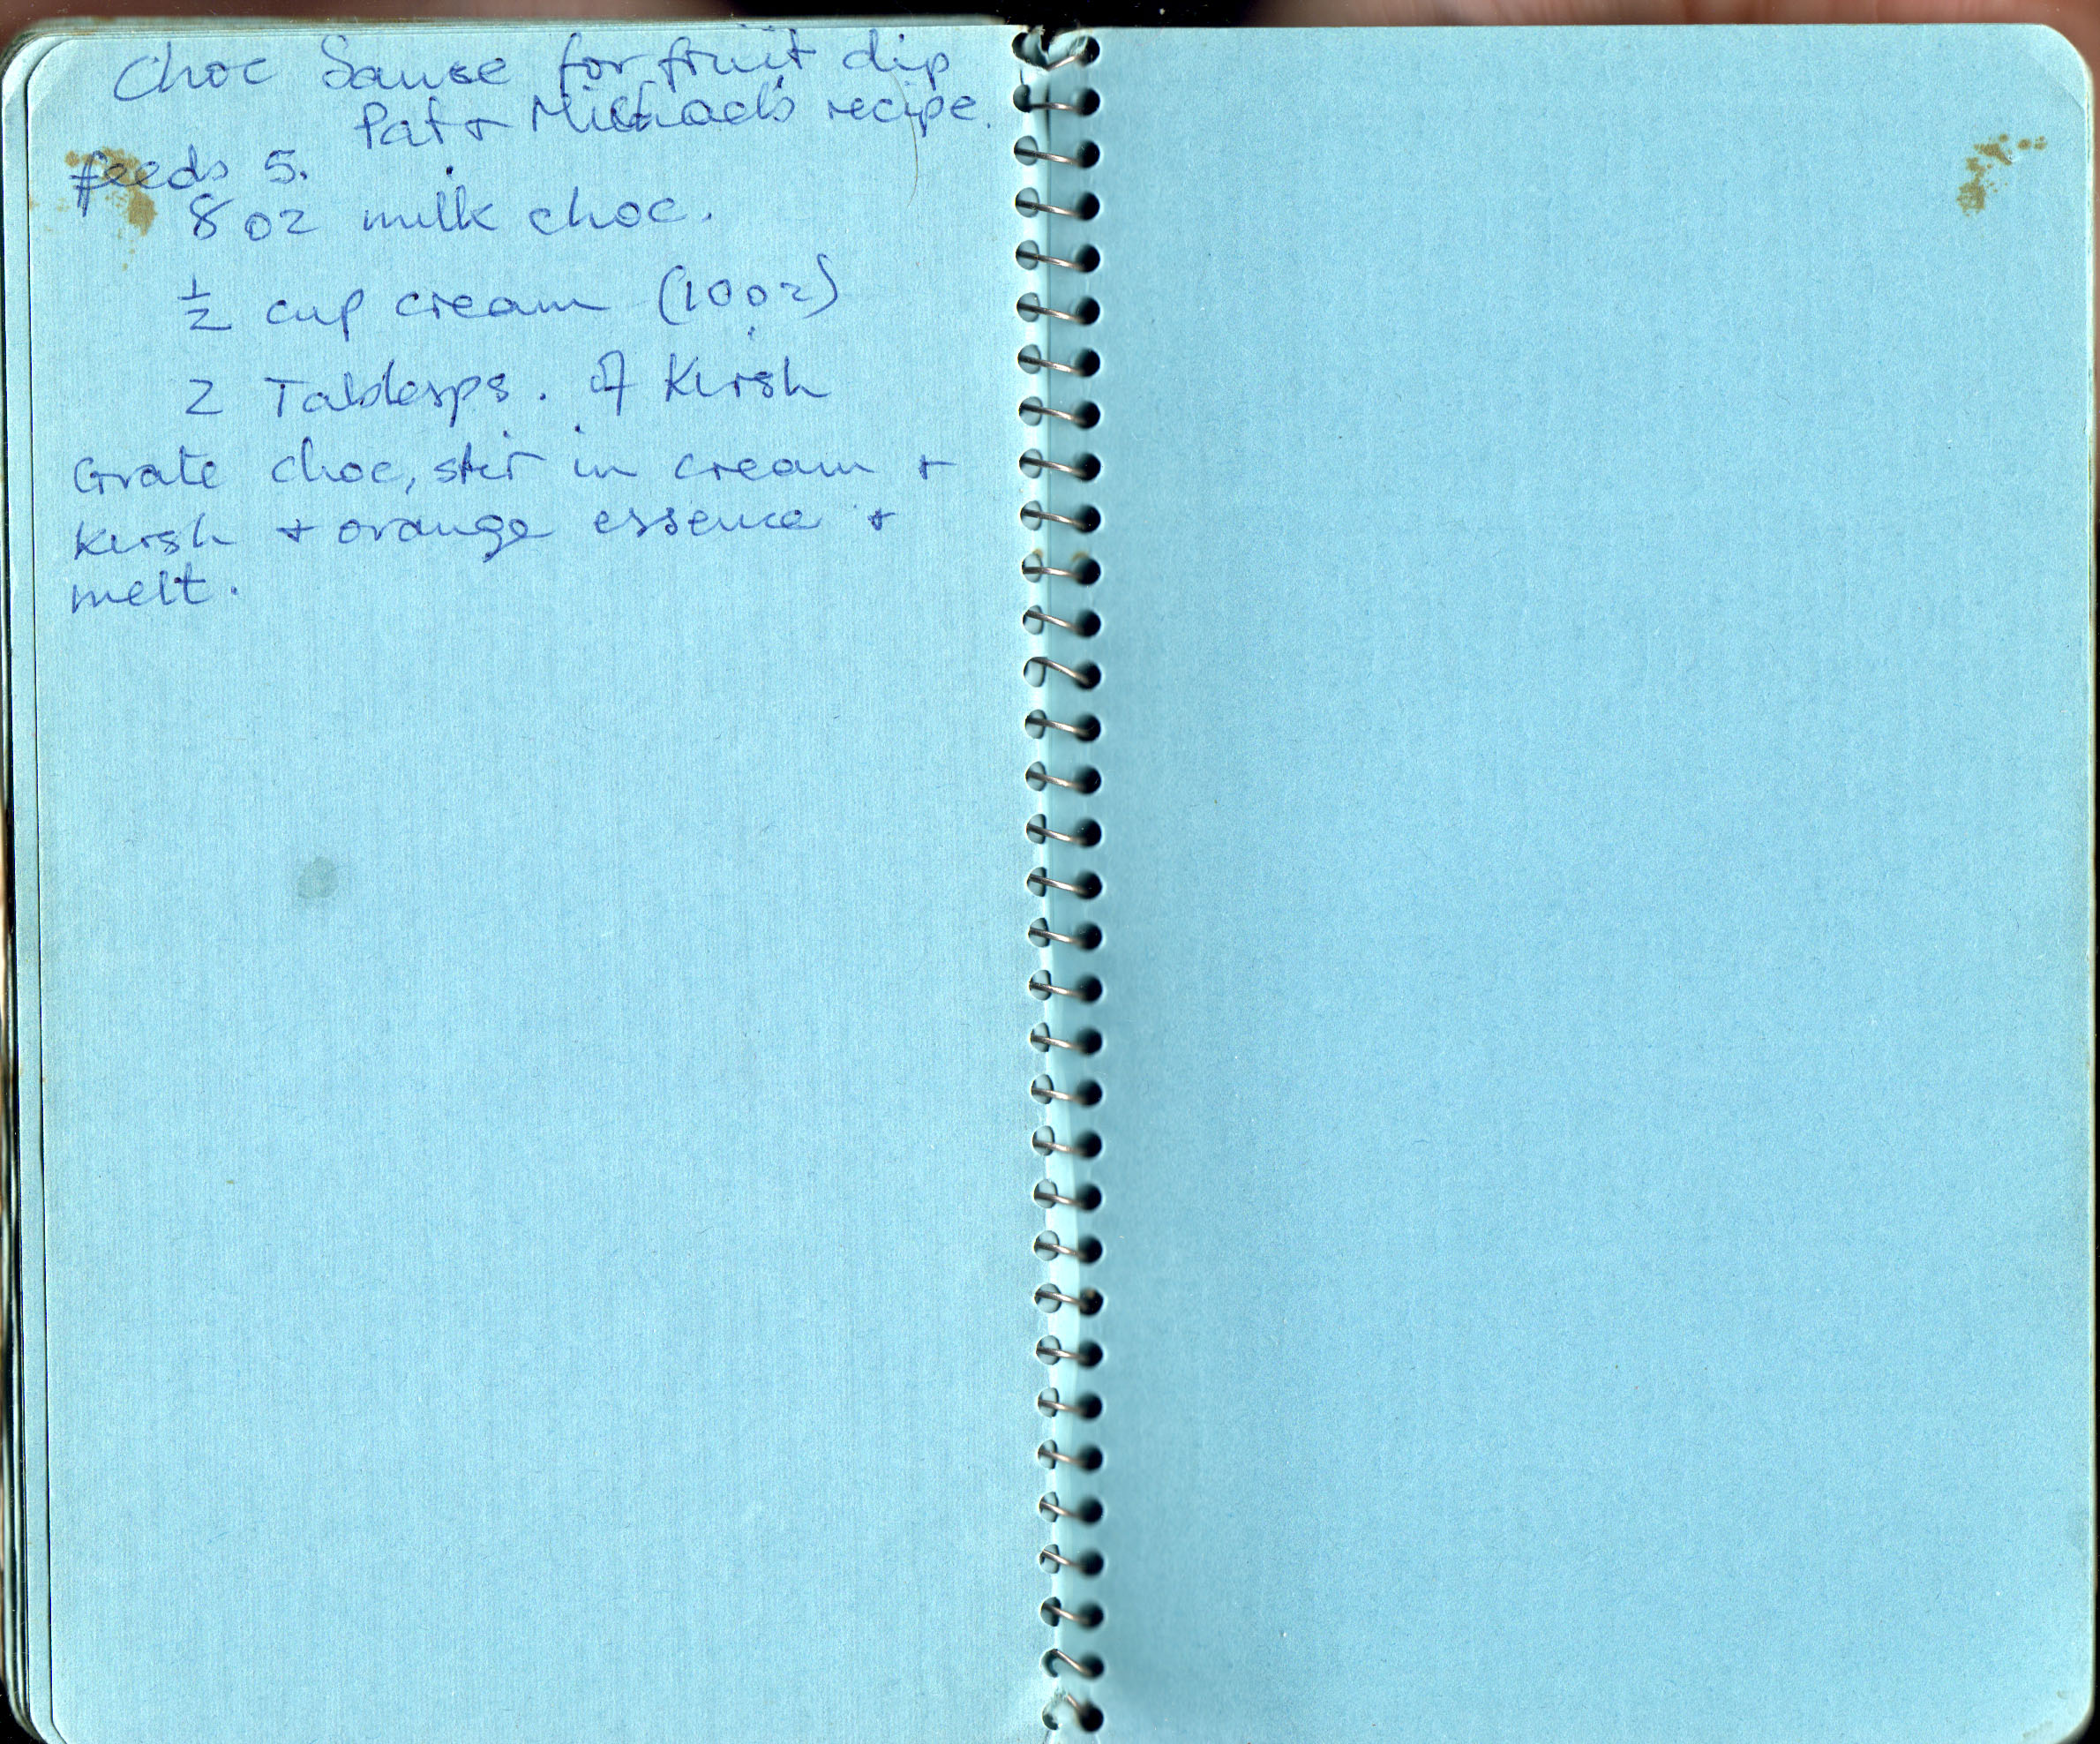 Choc Sauce for fruit dip
Pat + Michael's recipe.
feeds 5.
8 oz milk choc.
½ cup cream (10oz)
2 Tablesps. of Kirsh
Grate choc, stir in cream +
Kirsh + orange essence +
melt.